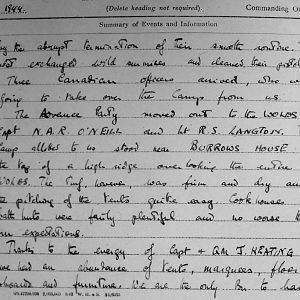 1944.
(Delete heading not required).
Commanding O
Summary of Events and Information
the abrupt termination of their smooth routine.
exchanged wild surmises and cleaned their
Three Canadian officers arrived, who
going to take over the Camp from us.
The Advance Party moved out to the WOLDS
Capt N.A.R. O'NEILL and Lt R.S. LANGTON.
Camp allotted to us stood near BURROWS HOUSE
top of a high ridge overlooking the entire
WOLDS. The turf, however, was firm and dry and
the pitching of the tents quite easy. Cook houses
were fairly plentiful and no worse than
expectations.
Thanks to the energy of Capt & QM J. KEATING
we had an abundance of tents, marquees, floor
boards and furniture. We are the only Bn. to have